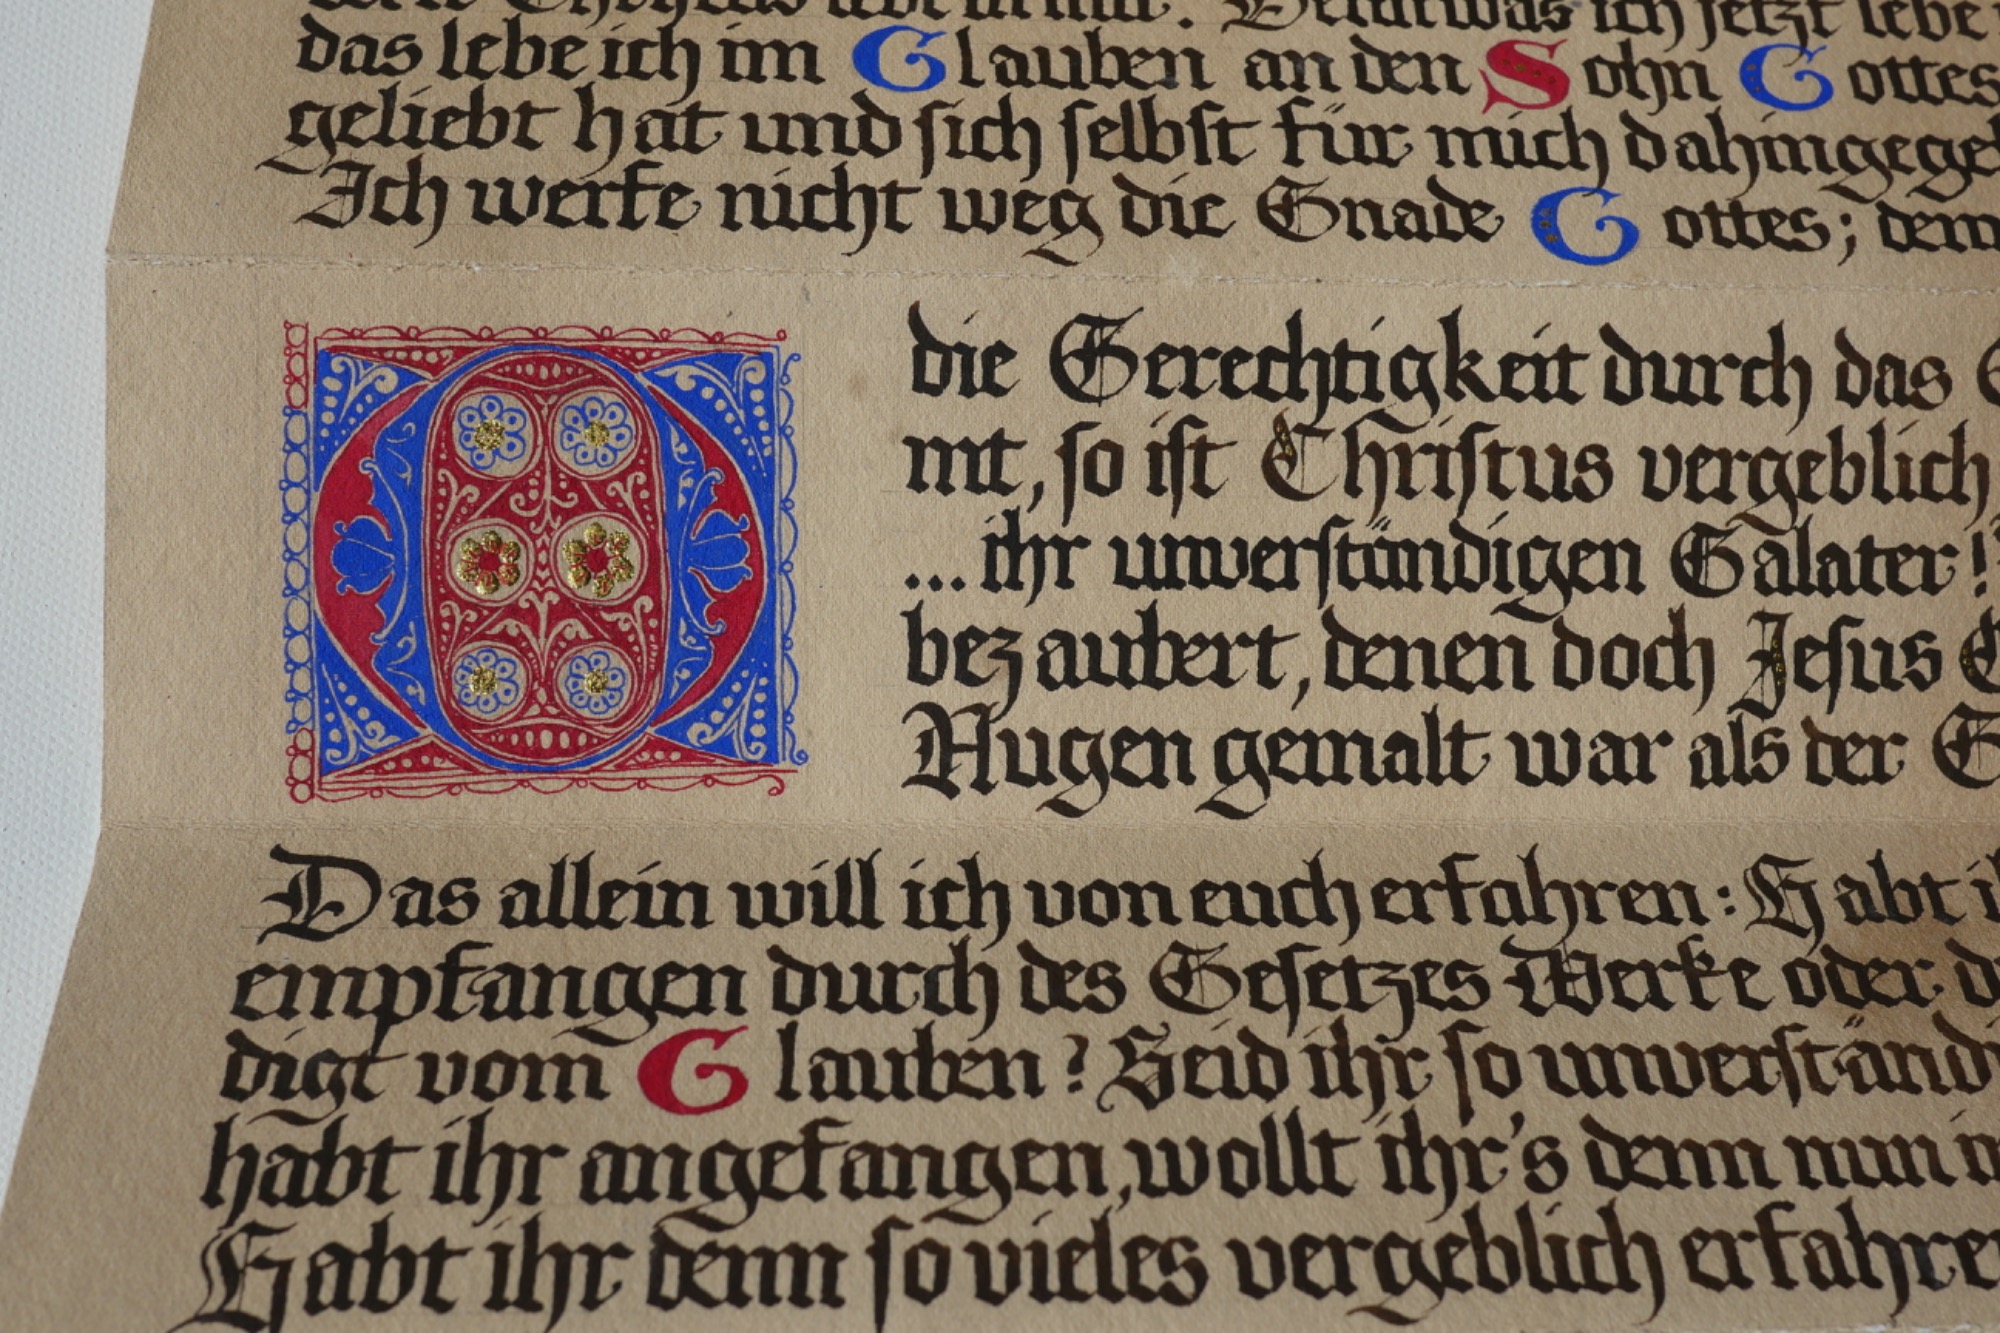 lebt in mir. Denn was ich jetzt lebe
das lebe ich im Glauben an den Sohn Gottes
geliebt hat und sich selbst für mich dahingegeb
Ich werfe nicht weg die Gnade Gottes; denn
die Gerechtigkeit durch das G
mt, so ist Christus vergeblich
O
... ihr unverständigen Galater!
bezaubert, denen doch Jesus C
Augen gemalt war als der G
Das allein will ich von euch erfahren: Habt i
empfangen durch des Gesetzes Werke oder d
digt vom Glauben? Seid ihr so unverständi
habt ihr angefangen, wollt ihr's denn nun i
Habt ihr denn so vieles vergeblich erfahre